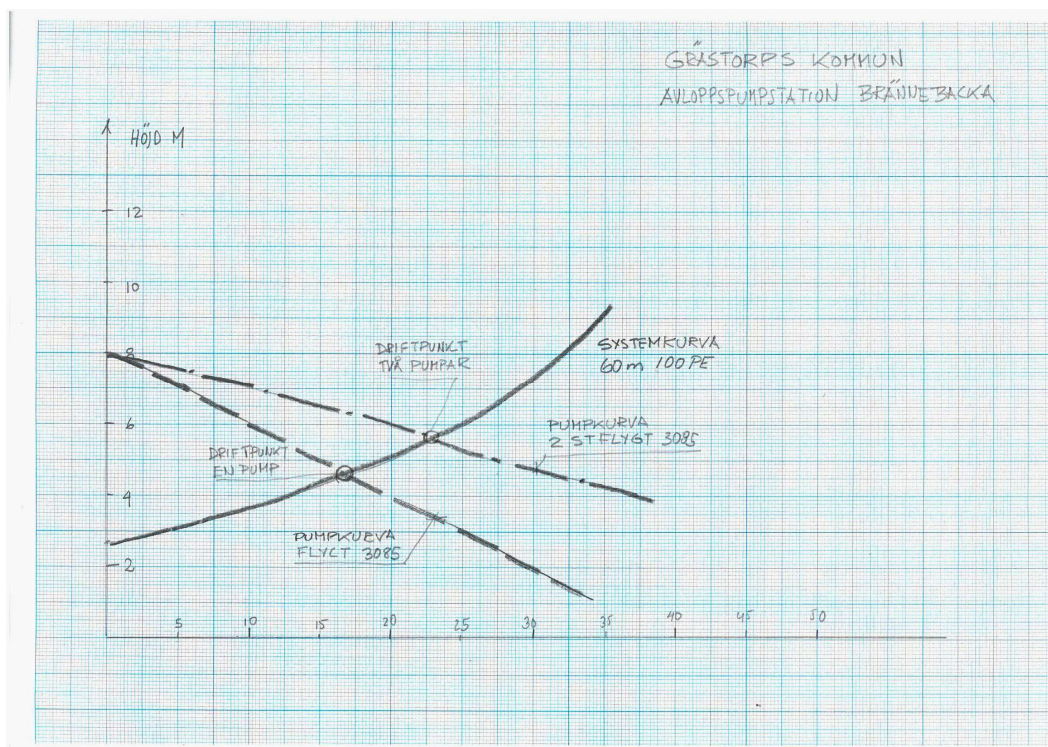 GRÄSTORPS KOMMUN
AVLOPPSPUMPSTATION BRÄNNEBACKA
HÖJD M
12
10
8
6
4
2
DRIFTPUNKT
TVÅ PUMPAR
SYSTEMKURVA
60m 100 PE
PUMPKURVA
2 ST FLYGT 3085
DRIFTPUNKT
EN PUMP
PUMPKURVA
FLYGT 3085
5 10 15 20 25 30 35 40 45 50